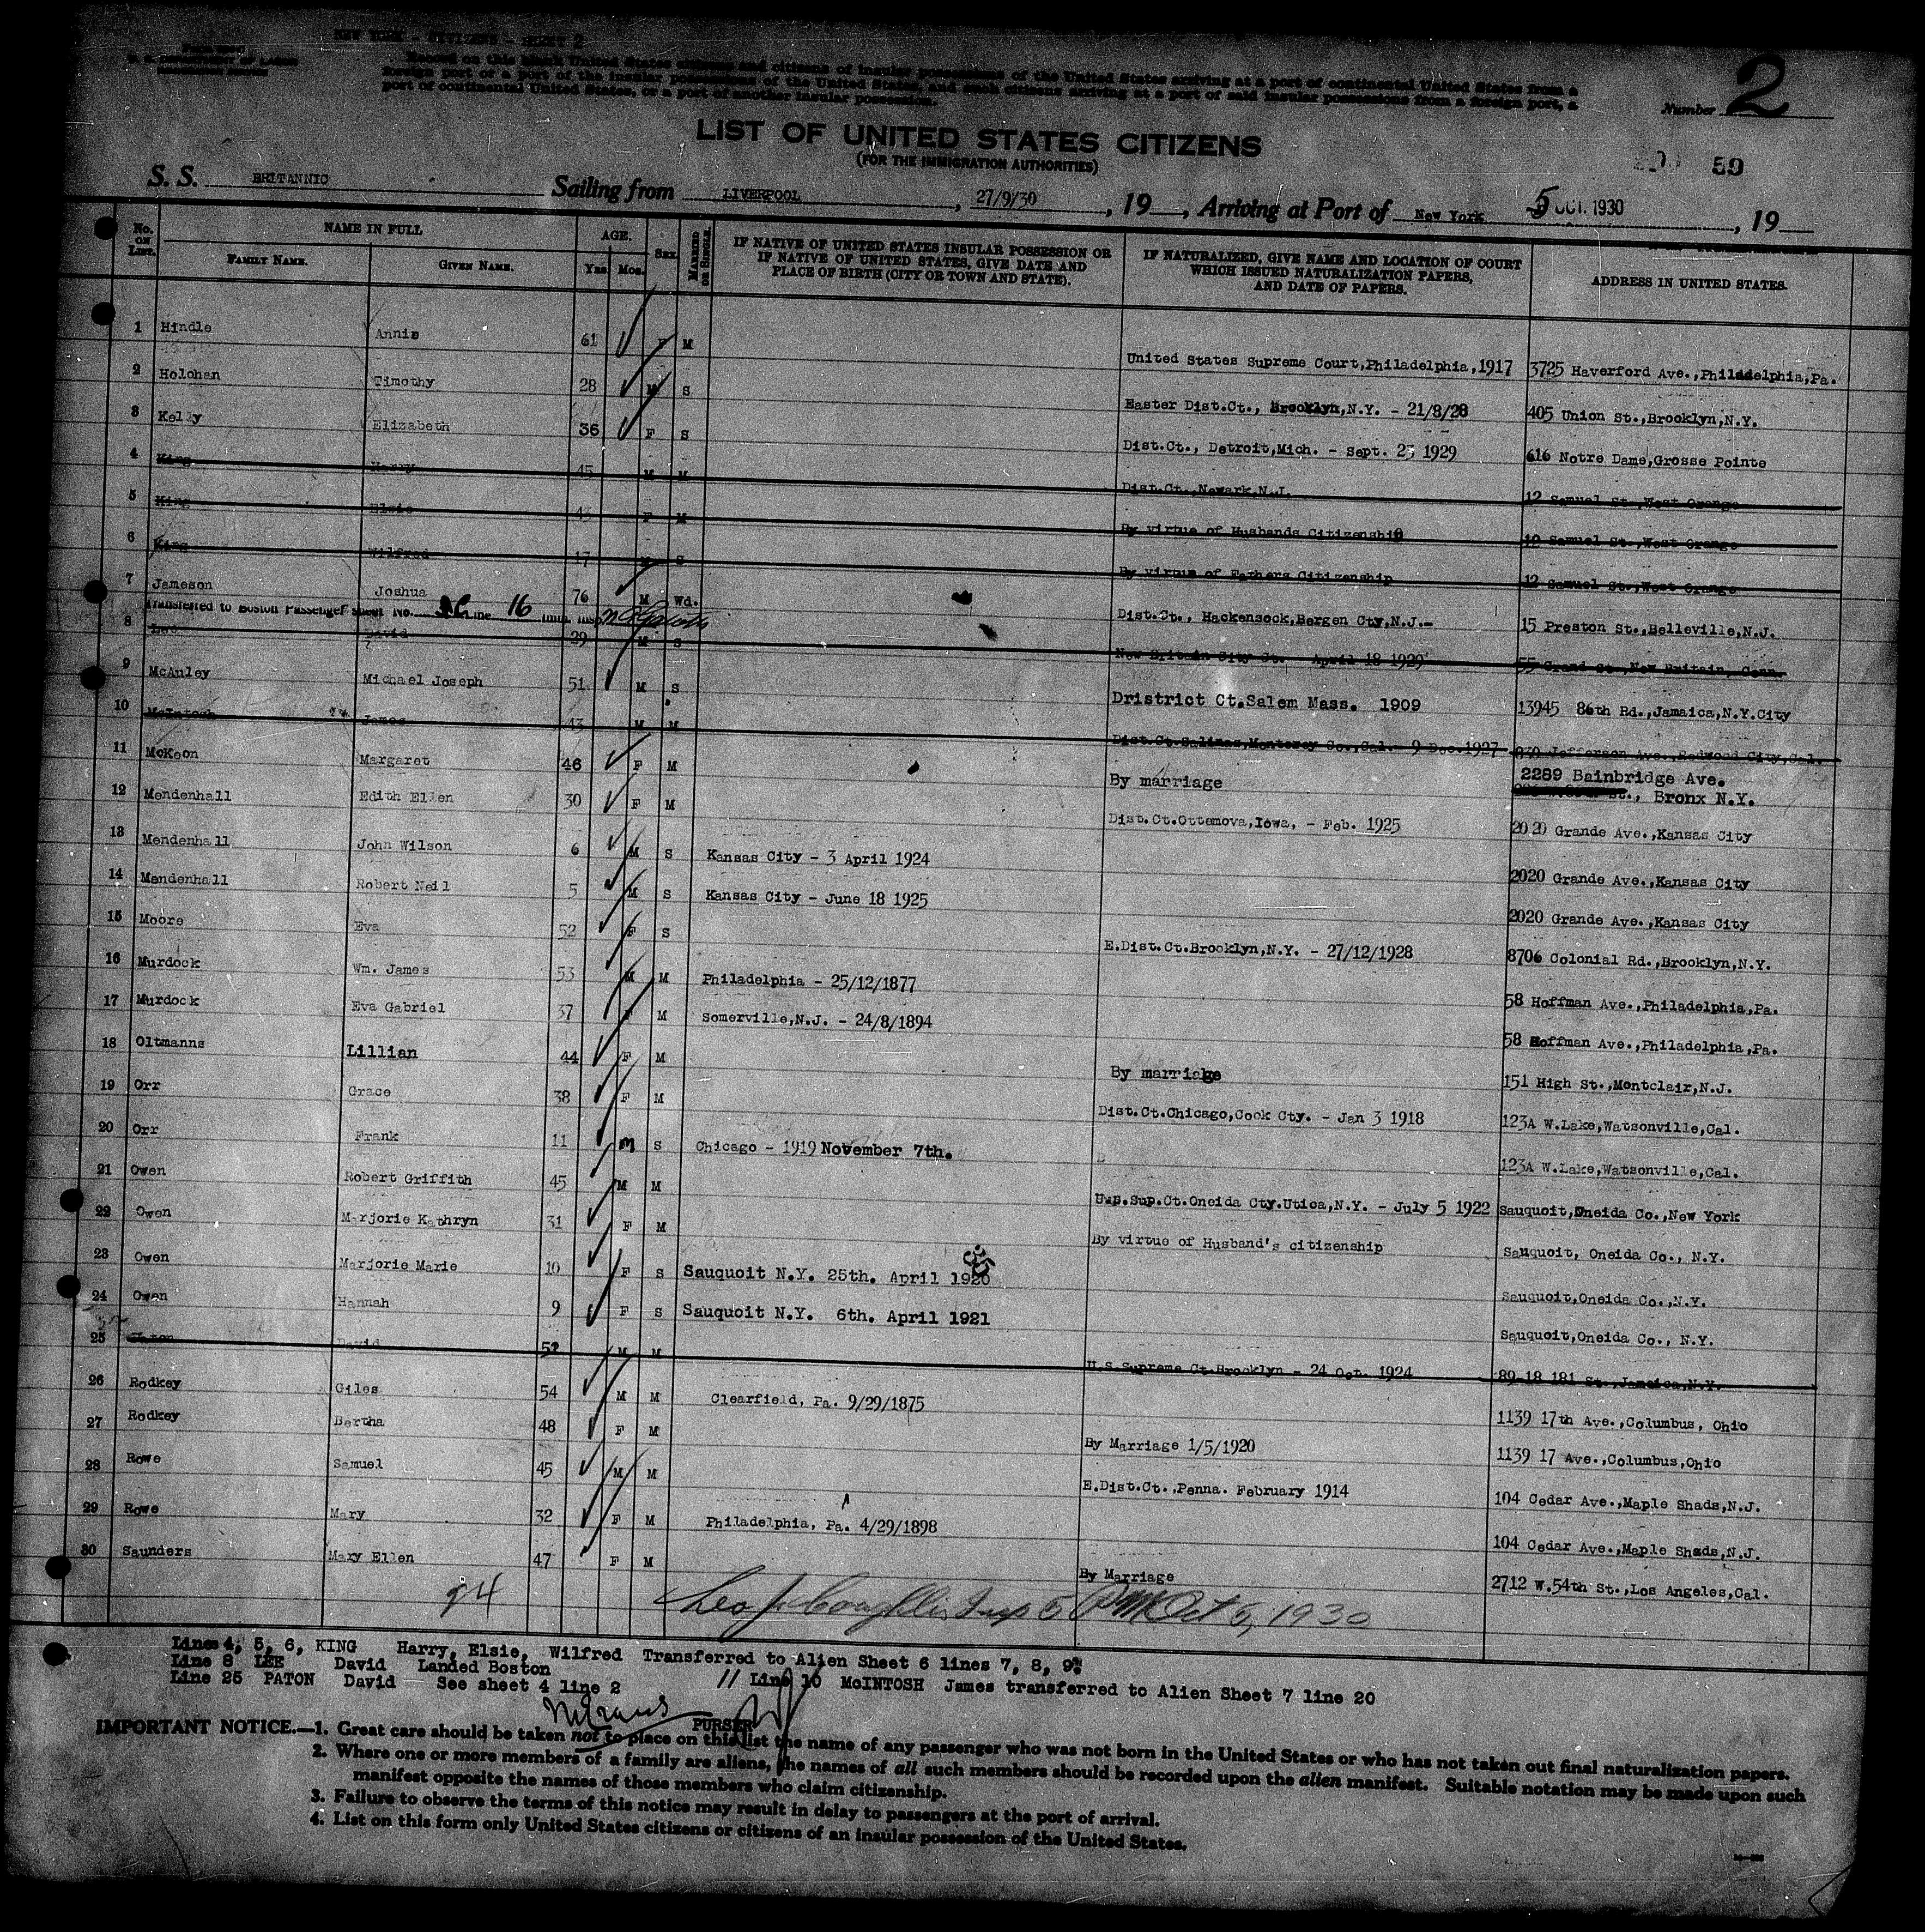 NEW YORK - CITIZENS - SHEET 2
foreign port or a port of the insular possessions of the United States, and such citizens arriving at a port of said insular possessions from a foreign port, a
port of continental United States, or a port of another insular possession.
Number 2
LIST OF UNITED STATES CITIZENS
(FOR THE IMMIGRATION AUTHORITIES)
59
S. S. BRITANNIC Sailing from LIVERPOOL, 27/9/30, 19, Arriving at Port of New York 5 OCT. 1930, 19
No. ON LIST. NAME IN FULL AGE. SEX. MARRIED OR SINGLE. IF NATIVE OF UNITED STATES INSULAR POSSESSION OR IF NATIVE OF UNITED STATES, GIVE DATE AND PLACE OF BIRTH (CITY OR TOWN AND STATE). IF NATURALIZED, GIVE NAME AND LOCATION OF COURT WHICH ISSUED NATURALIZATION PAPERS, AND DATE OF PAPERS. ADDRESS IN UNITED STATES.
FAMILY NAME. GIVEN NAME. Yrs. Mos.
1 Hindle Annie 61 F M United States Supreme Court,Philadelphia,1917 3725 Haverford Ave.,Philadelphia,Pa.
2 Holohan Timothy 28 M S Easter Dist.Ct., Brooklyn,N.Y. - 21/8/28 405 Union St.,Brooklyn,N.Y.
3 Kelly Elizabeth 36 F S Dist.Ct., Detroit,Mich. - Sept. 1929 616 Notre Dame,Grosse Pointe
4 King Harry 45 M M Dist.Ct.,Newark,N.J. 12 Samuel St.,West Orange
5 King Elsie 43 F M By virtue of Husbands Citizenship 12 Samuel St.,West Orange
6 King Wilfred 17 M S By virtue of Fathers Citizenship 12 Samuel St.,West Orange
7 Jameson Joshua 76 M Wd. Dist.Ct., Hackensock,Bergen Cty,N.J.- 15 Preston St.,Belleville,N.J.
Transferred to Boston Passenger Sheet No. Line 16 Imm. Insp.
8 Lee David 29 M S New Britain City Ct. - April 18 1929 55 Grand St.,New Britain, Conn.
9 McAnley Michael Joseph 51 M S Dristrict Ct.Salem Mass. 1909 13945 86th Rd.,Jamaica,N.Y.City
10 McIntosh James 43 M M Dist.Ct.Salinas,Monterey Co.,Cal. 9 Dec.1927 Jefferson Ave.,Redwood City,Cal.
11 McKeon Margaret 46 F M By marriage 2289 Bainbridge Ave.
St., Bronx N.Y.
12 Mendenhall Edith Ellen 30 F M Dist.Ct.Ottamova,Iowa, - Feb. 1925 2020 Grande Ave.,Kansas City
13 Mendenhall John Wilson 6 M S Kansas City - 3 April 1924 2020 Grande Ave.,Kansas City
14 Mendenhall Robert Neil 5 M S Kansas City - June 18 1925 2020 Grande Ave.,Kansas City
15 Moore Eva 52 F S E.Dist.Ct.Brooklyn,N.Y. - 27/12/1928 8706 Colonial Rd.,Brooklyn,N.Y.
16 Murdock Wm. James 53 M M Philadelphia - 25/12/1877 58 Hoffman Ave.,Philadelphia,Pa.
17 Murdock Eva Gabriel 37 F M Somerville,N.J. - 24/8/1894 58 Hoffman Ave.,Philadelphia,Pa.
18 Oltmanns Lillian 44 F M By marriage 151 High St.,Montclair,N.J.
19 Orr Grace 38 F M Dist.Ct.Chicago,Cook Cty. - Jan 3 1918 123A W.Lake,Watsonville,Cal.
20 Orr Frank 11 M S Chicago - 1919 November 7th. 123A W.Lake,Watsonville,Cal.
21 Owen Robert Griffith 45 M M Sup.Ct.Oneida Cty.Utica,N.Y. - July 5 1922 Sauquoit,Oneida Co.,New York
22 Owen Marjorie Kathryn 31 F M By virtue of Husband's citizenship Sauquoit, Oneida Co., N.Y.
23 Owen Marjorie Marie 10 F S Sauquoit N.Y. 25th. April 1920 Sauquoit,Oneida Co.,N.Y.
24 Owen Hannah 9 F S Sauquoit N.Y. 6th. April 1921 Sauquoit,Oneida Co., N.Y.
25 Paton David 52 M M U.S.Supreme Ct.Brooklyn - 24 Oct. 1924 89-18 181 St.,Jamaica,N.Y.
26 Rodkey Giles 54 M M Clearfield, Pa. 9/29/1875 1139 17th Ave.,Columbus, Ohio
27 Rodkey Bertha 48 F M By Marriage 1/5/1920 1139 17 Ave.,Columbus,Ohio
28 Rowe Samuel 45 M M E.Dist.Ct.,Penna. February 1914 104 Cedar Ave.,Maple Shads,N.J.
29 Rowe Mary 32 F M Philadelphia, Pa. 4/29/1898 104 Cedar Ave.,Maple Shads,N.J.
30 Saunders Mary Ellen 47 F M By Marriage 2712 W.54th St.,Los Angeles,Cal.
24 Leo J. Coughlin Insp Oct 5, 1930
Lines 4, 5, 6, KING Harry, Elsie, Wilfred Transferred to Alien Sheet 6 lines 7, 8, 9.
Line 8 LEE David Landed Boston
Line 25 PATON David See sheet 4 line 2 // Line 10 McINTOSH James transferred to Alien Sheet 7 line 20
PURSER
IMPORTANT NOTICE.—1. Great care should be taken not to place on this list the name of any passenger who was not born in the United States or who has not taken out final naturalization papers.
2. Where one or more members of a family are aliens, the names of all such members should be recorded upon the alien manifest. Suitable notation may be made upon such
manifest opposite the names of those members who claim citizenship.
3. Failure to observe the terms of this notice may result in delay to passengers at the port of arrival.
4. List on this form only United States citizens or citizens of an insular possession of the United States.